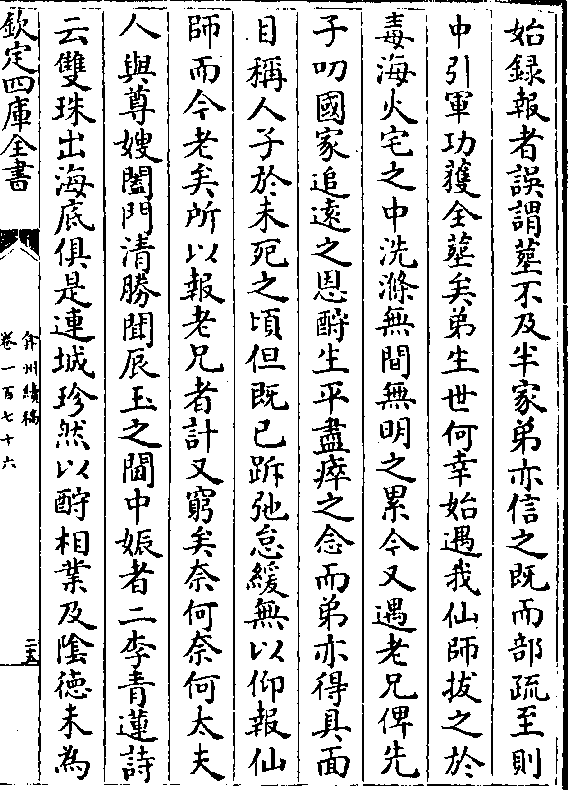 始録報者誤謂塟不及半家弟亦信之既而部疏至則
中引軍功獲全塟矣弟生世何幸始遇我仙師拔之於
毒海火宅之中洗滌無間無明之累今又遇老兄俾先
子叨國家追遠之恩酧生平盡瘁之念而弟亦得具面
目稱人子於未死之頃但既已跅弛怠緩無以仰報仙
師而今老矣所以報老兄者計又窮矣奈何奈何太夫
人與尊嫂闔門清勝聞辰玉之閫中娠者二李青蓮詩
云雙珠出海底俱是連城珍然以酧相業及隂德未為
欽定四庫全書
弇州續稿
卷一百七十六
二五